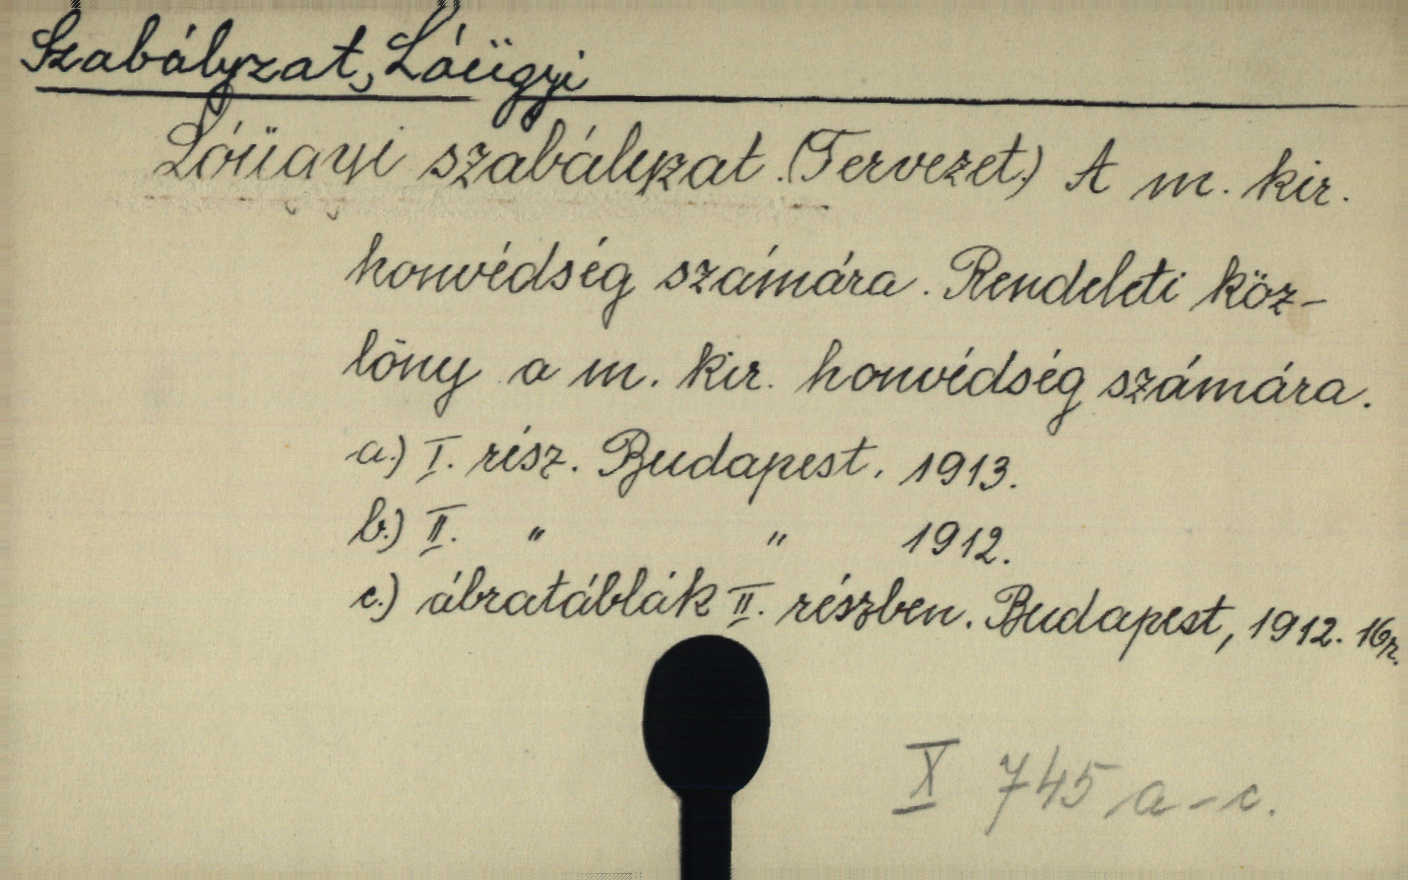 Szabályzat, Lóügyi
Lóügyi szabályzat. (Tervezet.) A m. kir.
honvédség számára. Rendeleti köz-
löny a m. kir. honvédség számára.
a.) I. rész. Budapest, 1913.
b.) II. " " 1912.
c.) ábratáblák II. részben. Budapest, 1912. 16r.
X 745 a-c.